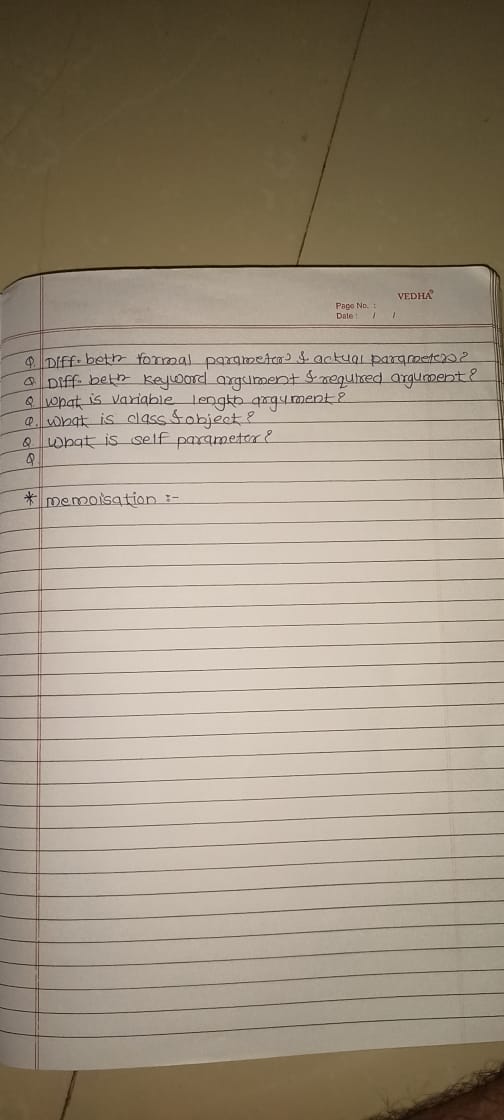 VEDHA®
Page No. :
Date : / /
Q. Diff. betn formal parameters & actual parameters?
Q. Diff. betn keyword argument & required argument?
Q. What is variable length argument?
Q. What is class & object?
Q. What is self parameter?
Q.
* memoisation :-